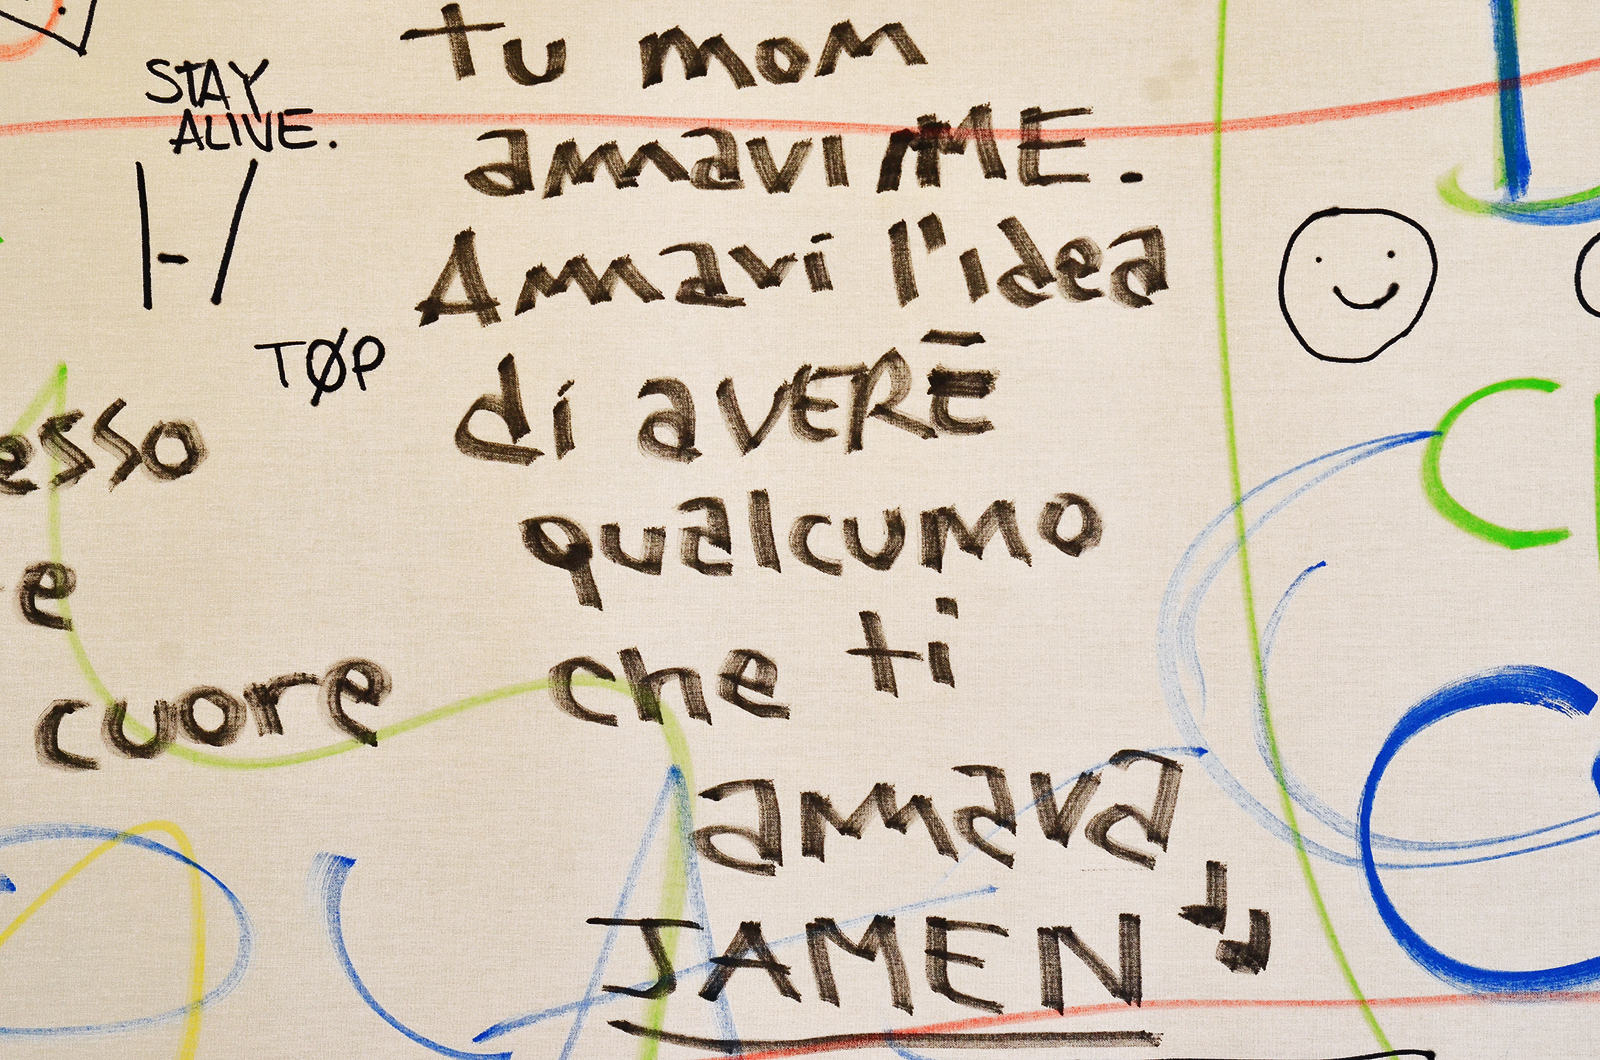 tu non
amavi ME.
Amavi l'idea
di AVERE
qualcuno
che ti
amava
JAMEN
STAY
ALIVE.
|-/
TØP
esso
e
cuore